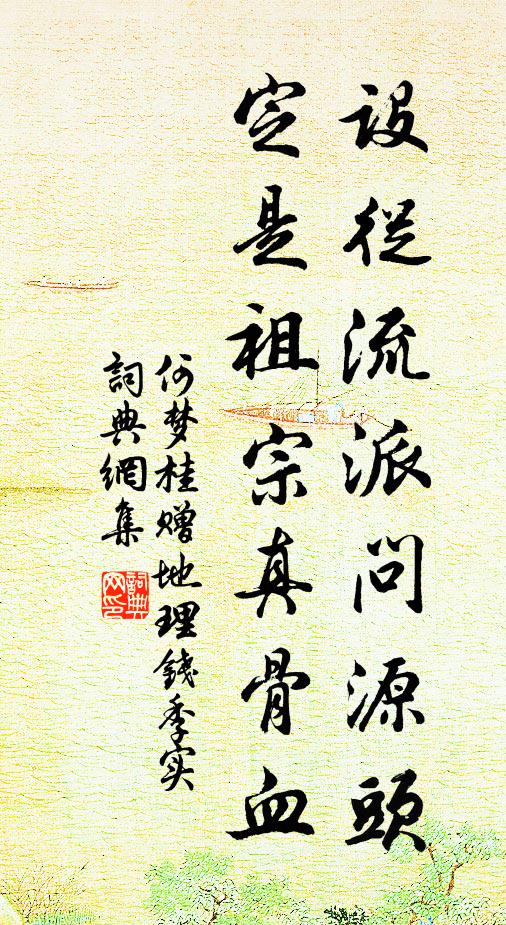 設從流派問源頭
定是祖宗真骨血
何梦桂赠地理錢季实
詞典網集
詞典
网印